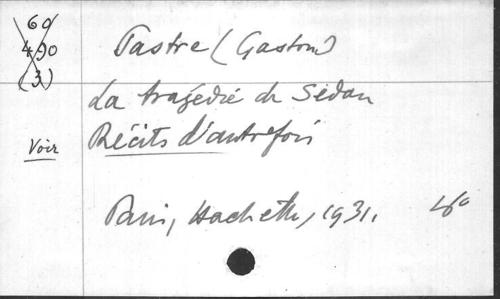 60
490
(3)
Pastre (Gaston)
La tragédie de Sedan
Voir
Récits d'autrefois
Paris, Hachette, 1931. 16°